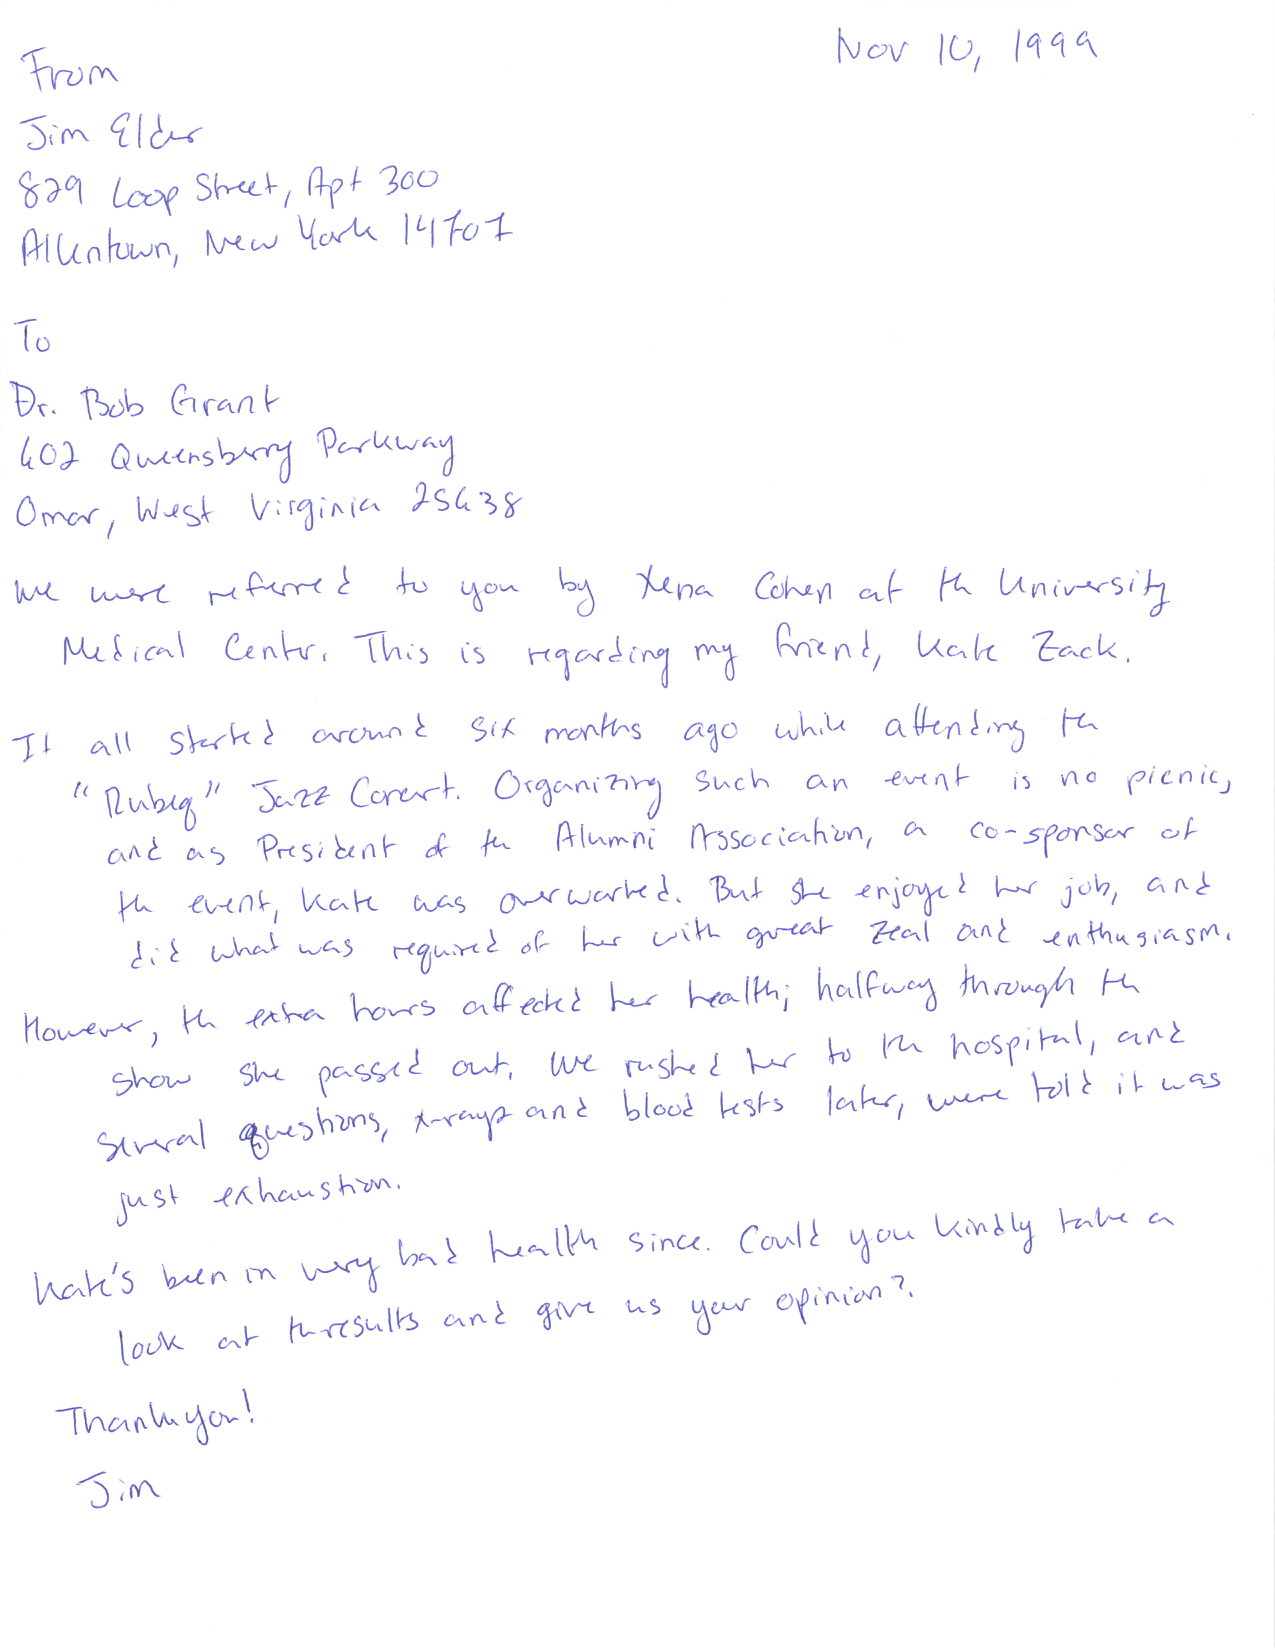 Nov 10, 1999
From
Jim Elder
829 Loop Street, Apt 300
Allentown, New York 14707
To
Dr. Bob Grant
602 Queensberry Parkway
Omar, West Virginia 25638
We were referred to you by Xena Cohen at the University
Medical Center. This is regarding my friend, Kate Zack.
It all started around six months ago while attending the
"Rubeq" Jazz Concert. Organizing such an event is no picnic,
and as President of the Alumni Association, a co-sponsor of
the event, Kate was overworked. But she enjoyed her job, and
did what was required of her with great zeal and enthusiasm.
However, the extra hours affected her health; halfway through the
show she passed out. We rushed her to the hospital, and
several questions, x-rays and blood tests later, were told it was
just exhaustion.
Kate's been in very bad health since. Could you kindly take a
look at the results and give us your opinion?
Thank you!
Jim